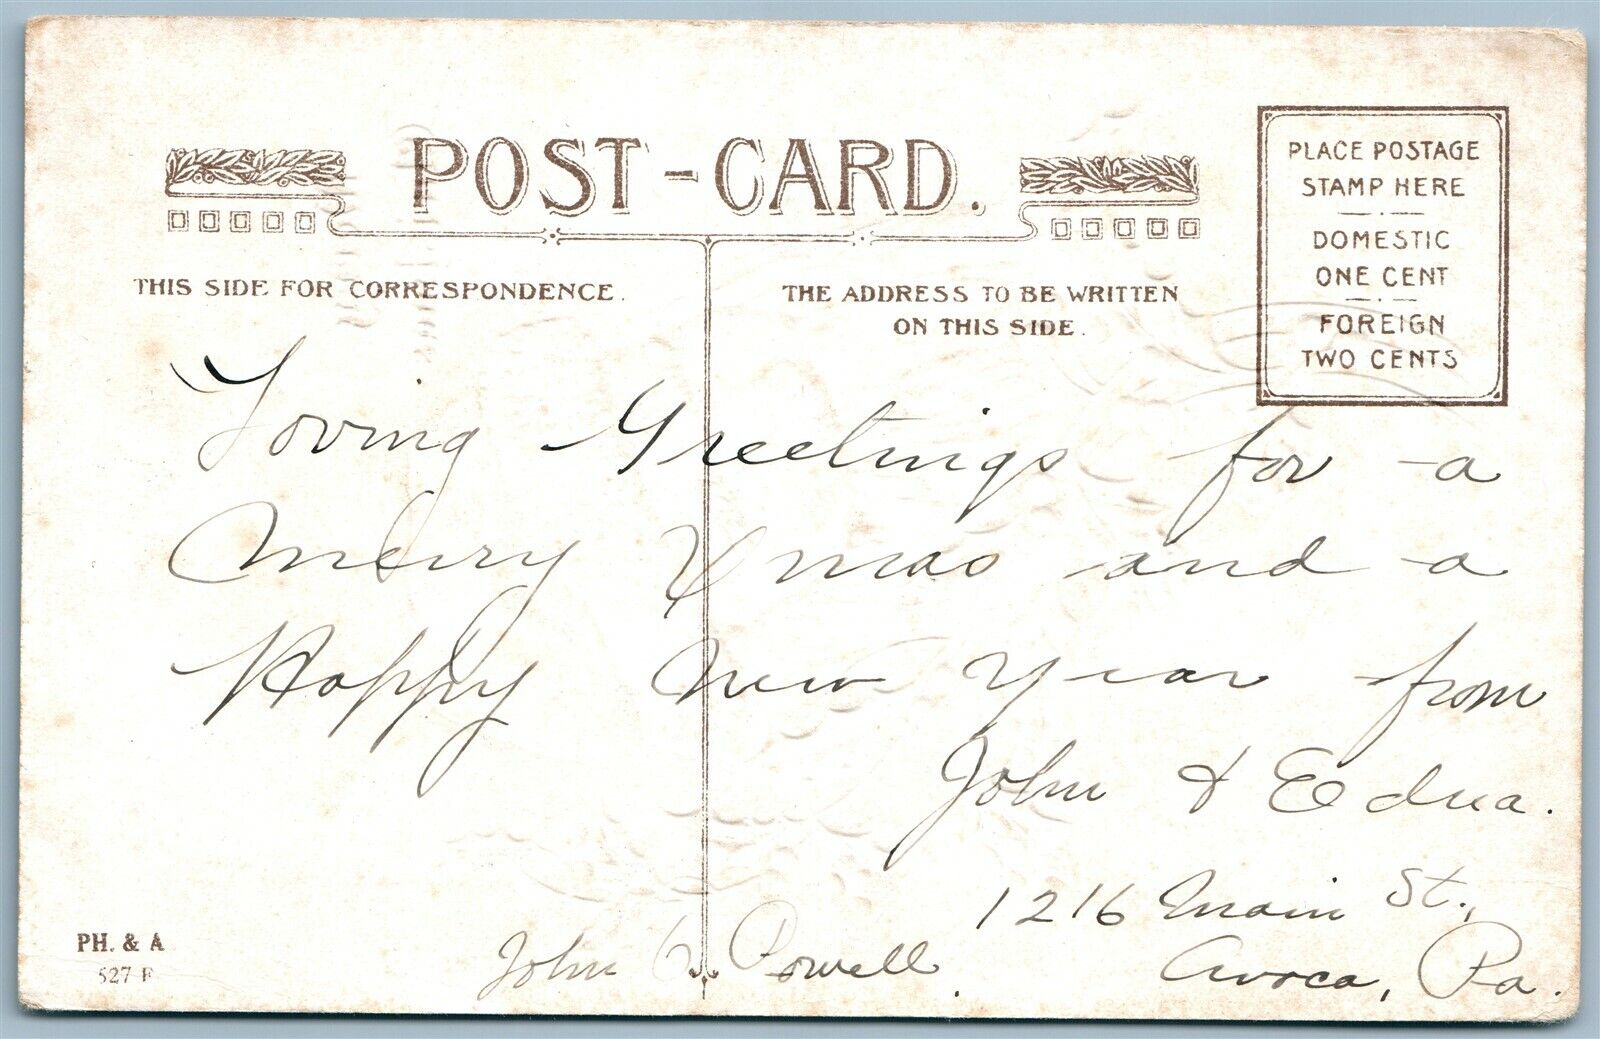 POST-CARD.
THIS SIDE FOR CORRESPONDENCE.
THE ADDRESS TO BE WRITTEN
ON THIS SIDE.
PLACE POSTAGE
STAMP HERE
DOMESTIC
ONE CENT
FOREIGN
TWO CENTS
Loving Greetings for a
Merry Xmas and a
Happy New Year from
John & Edna.
1216 Main St.,
Avoca, Pa.
John Powell.
PH. & A
527 F